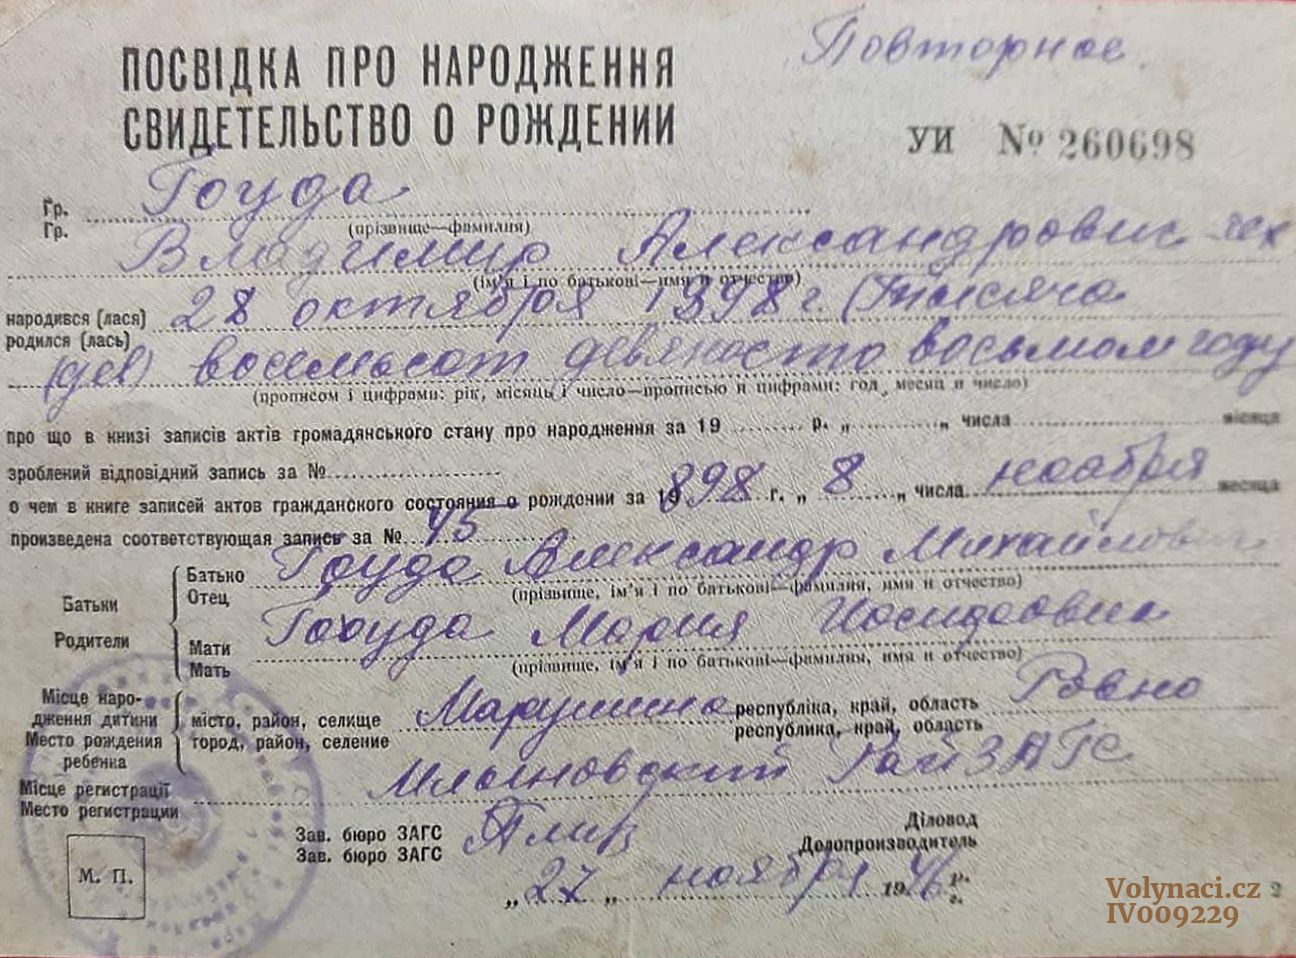 Повторное
ПОСВІДКА ПРО НАРОДЖЕННЯ
СВИДЕТЕЛЬСТВО О РОЖДЕНИИ
УИ № 260698
Гр. Гоуда
Гр.
(прізвище—фамилия)
Владимир Александрович чех
(ім'я і по батькові—имя и отчество)
народився (лася) 28 октября 1898 г. (Тысяча
родился (лась)
восемьсот девяносто восьмом году
(прописом і цифрами: рік, місяць і число—прописью и цифрами: год, месяц и число)
про що в книзі записів актів громадянського стану про народження за 19 р. „ „ числа місяця
зроблений відповідний запись за №
о чем в книге записей актов гражданского состояния о рождении за 1898 г. „ 8 „ числа ноября месяца
произведена соответствующая запись за № 45
Батьки
Родители
Батько Гоуда Александр Михайлович
Отец
(прізвище, ім'я і по батькові—фамилия, имя и отчество)
Мати Мария
Мать
(прізвище, ім'я і по батькові—фамилия, имя и отчество)
Місце наро-
дження дитини
Место рождения
ребенка
місто, район, селище республіка, край, область Ровно
город, район, селение республика, край, область
Місце регистрації РайЗАГС
Место регистрации
Зав. бюро ЗАГС
Зав. бюро ЗАГС
Діловод
Делопроизводитель
М. П.
„ 27 „ ноября 1946 р.
г.
2
Volynaci.cz
IV009229